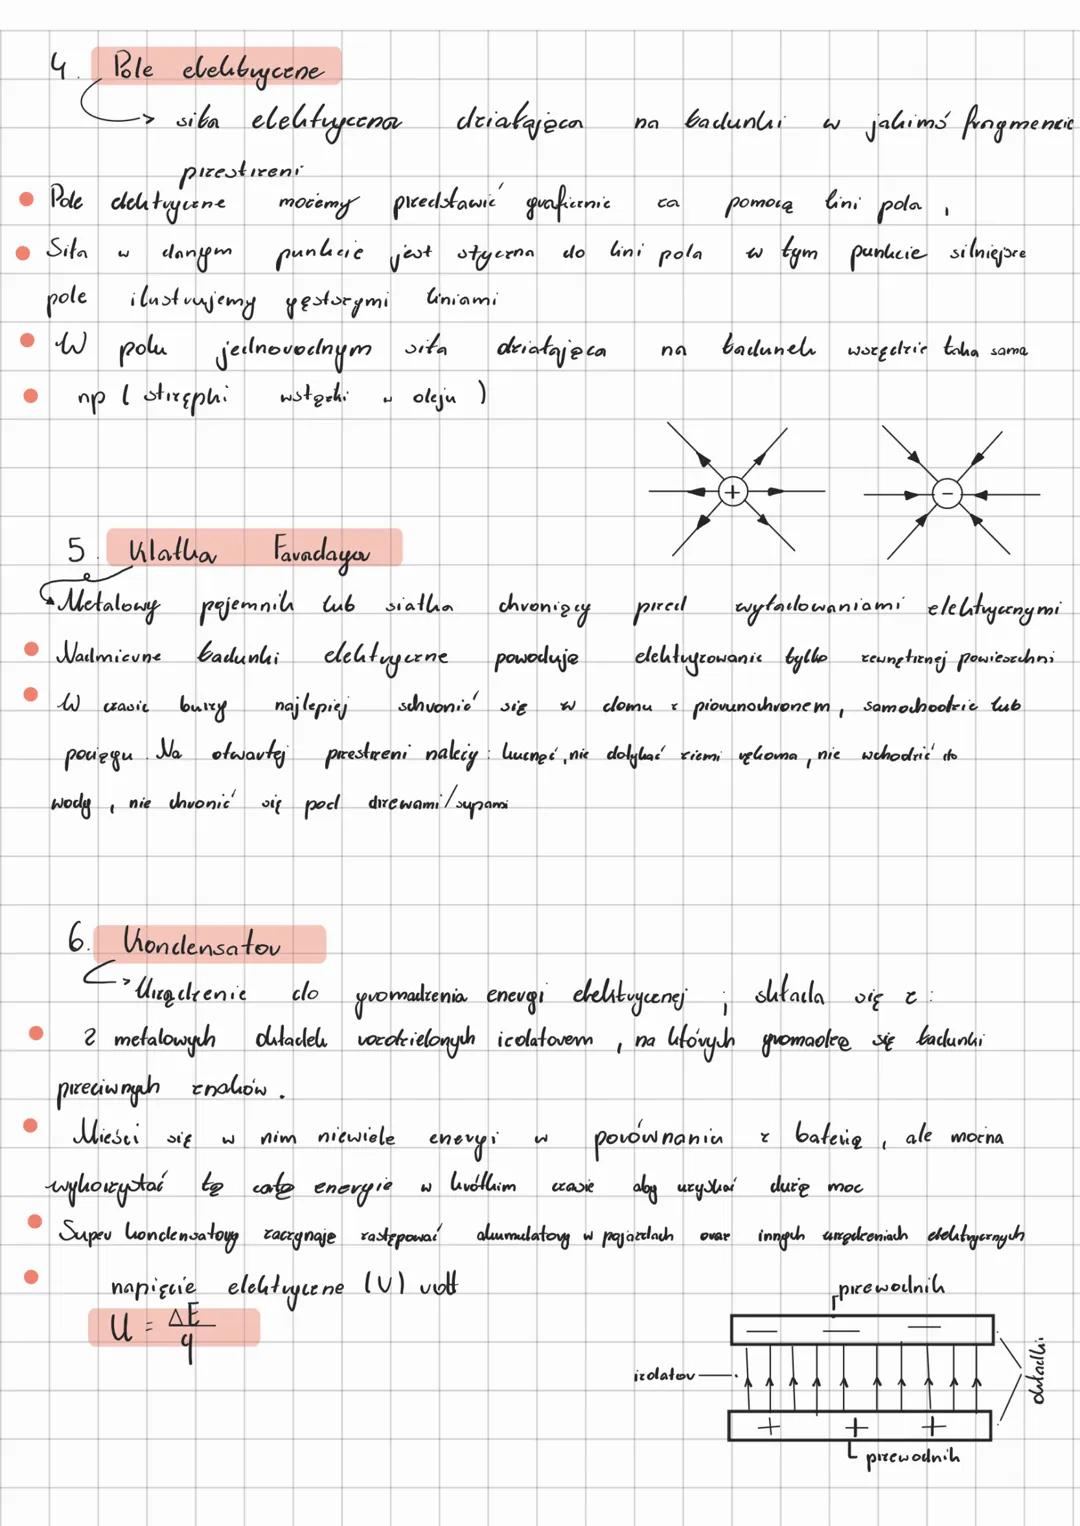 4. Pole elektryczne
siła elektryczna działająca na ładunki w jakimś fragmencie
przestrzeni
Pole elektryczne możemy przedstawić graficznie za pomocą lini pola,
Siła w danym punkcie jest styczna do lini pola w tym punkcie silniejsze
pole ilustrujemy gęstszymi liniami
W polu jednorodnym siła działająca na ładunek wszędzie taka sama
np ( strzępki wstążki w oleju )
+ −
5. Klatka Faradaya
Metalowy pojemnik lub siatka chroniący przed wyładowaniami elektrycznymi
Nadmierne ładunki elektryczne powodują elektryzowanie tylko zewnętrznej powierzchni
W czasie burzy najlepiej schronić się w domu z piorunochronem, samochodzie lub
pociągu. Na otwartej przestrzeni należy: kucnąć, nie dotykać ziemi rękoma, nie wchodzić do
wody, nie chronić się pod drzewami/słupami
6. Kondensator
Urządzenie do gromadzenia energi elektrycznej; składa się z:
2 metalowych okładek rozdzielonych izolatorem, na których gromadzą się ładunki
przeciwnych znaków.
Mieści się w nim niewiele energi w porównaniu z baterią, ale można
wykorzystać tę całą energię w krótkim czasie aby uzyskać dużą moc
Super kondensatory zaczynają zastępować akumulatory w pojazdach oraz innych urządzeniach elektrycznych
napięcie elektryczne (U) volt
U = ΔE/q
przewodnik
− − −
izolator
okładki
+ + +
przewodnik